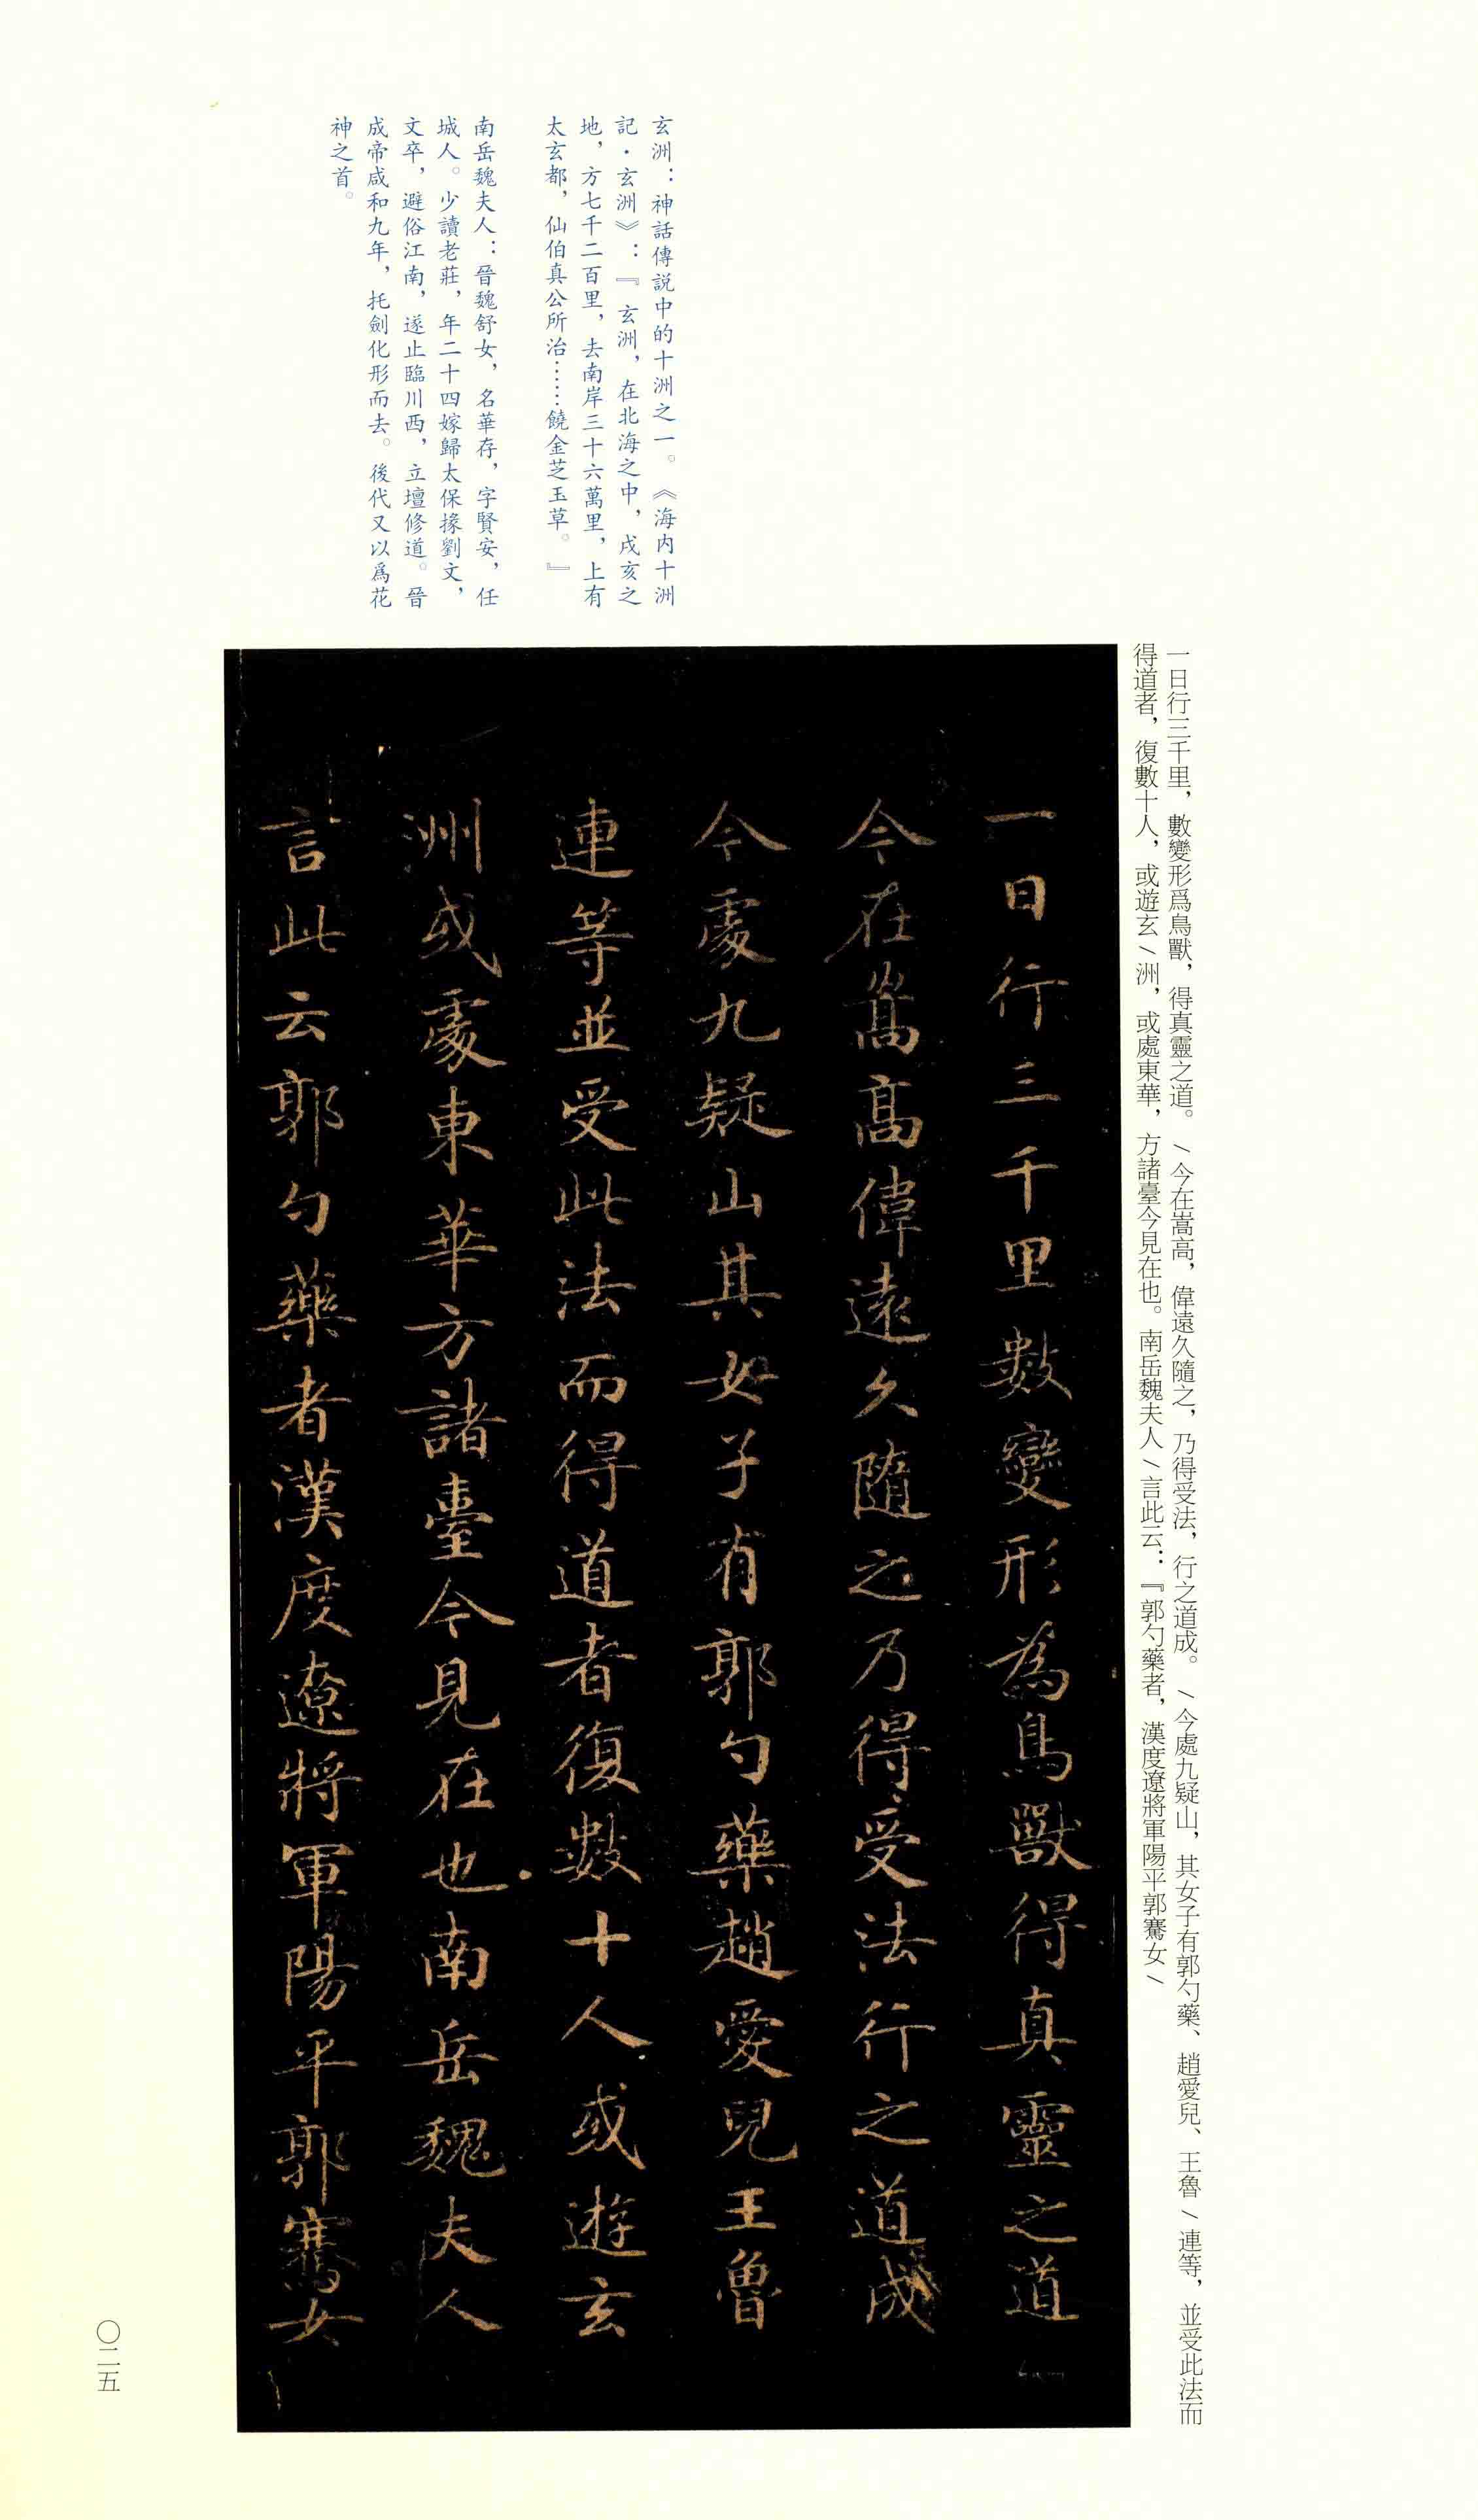 一日行三千里，數變形爲鳥獸，得真靈之道。＼今在嵩高，偉遠久隨之，乃得受法，行之道成。＼今處九疑山，其女子有郭勺藥、趙愛兒、王魯＼連等，並受此法而
得道者，復數十人，或遊玄＼洲，或處東華，方諸臺今見在也。南岳魏夫人＼言此云：『郭勺藥者，漢度遼將軍陽平郭騫女＼
玄洲：神話傳説中的十洲之一。《海内十洲
記·玄洲》：『玄洲，在北海之中，戌亥之
地，方七千二百里，去南岸三十六萬里，上有
太玄都，仙伯真公所治……饒金芝玉草。』
南岳魏夫人：晉魏舒女，名華存，字賢安，任
城人。少讀老莊，年二十四嫁歸太保掾劉文，
文卒，避俗江南，遂止臨川西，立壇修道。晉
成帝咸和九年，托劍化形而去。後代又以爲花
神之首。
一日行三千里數變形為鳥獸得真靈之道
今在嵩高偉遠久隨之乃得受法行之道成
今處九疑山其女子有郭勺藥趙愛兒王魯
連等並受此法而得道者復數十人或遊玄
洲或處東華方諸臺今見在也南岳魏夫人
言此云郭勺藥者漢度遼將軍陽平郭騫女
〇二五